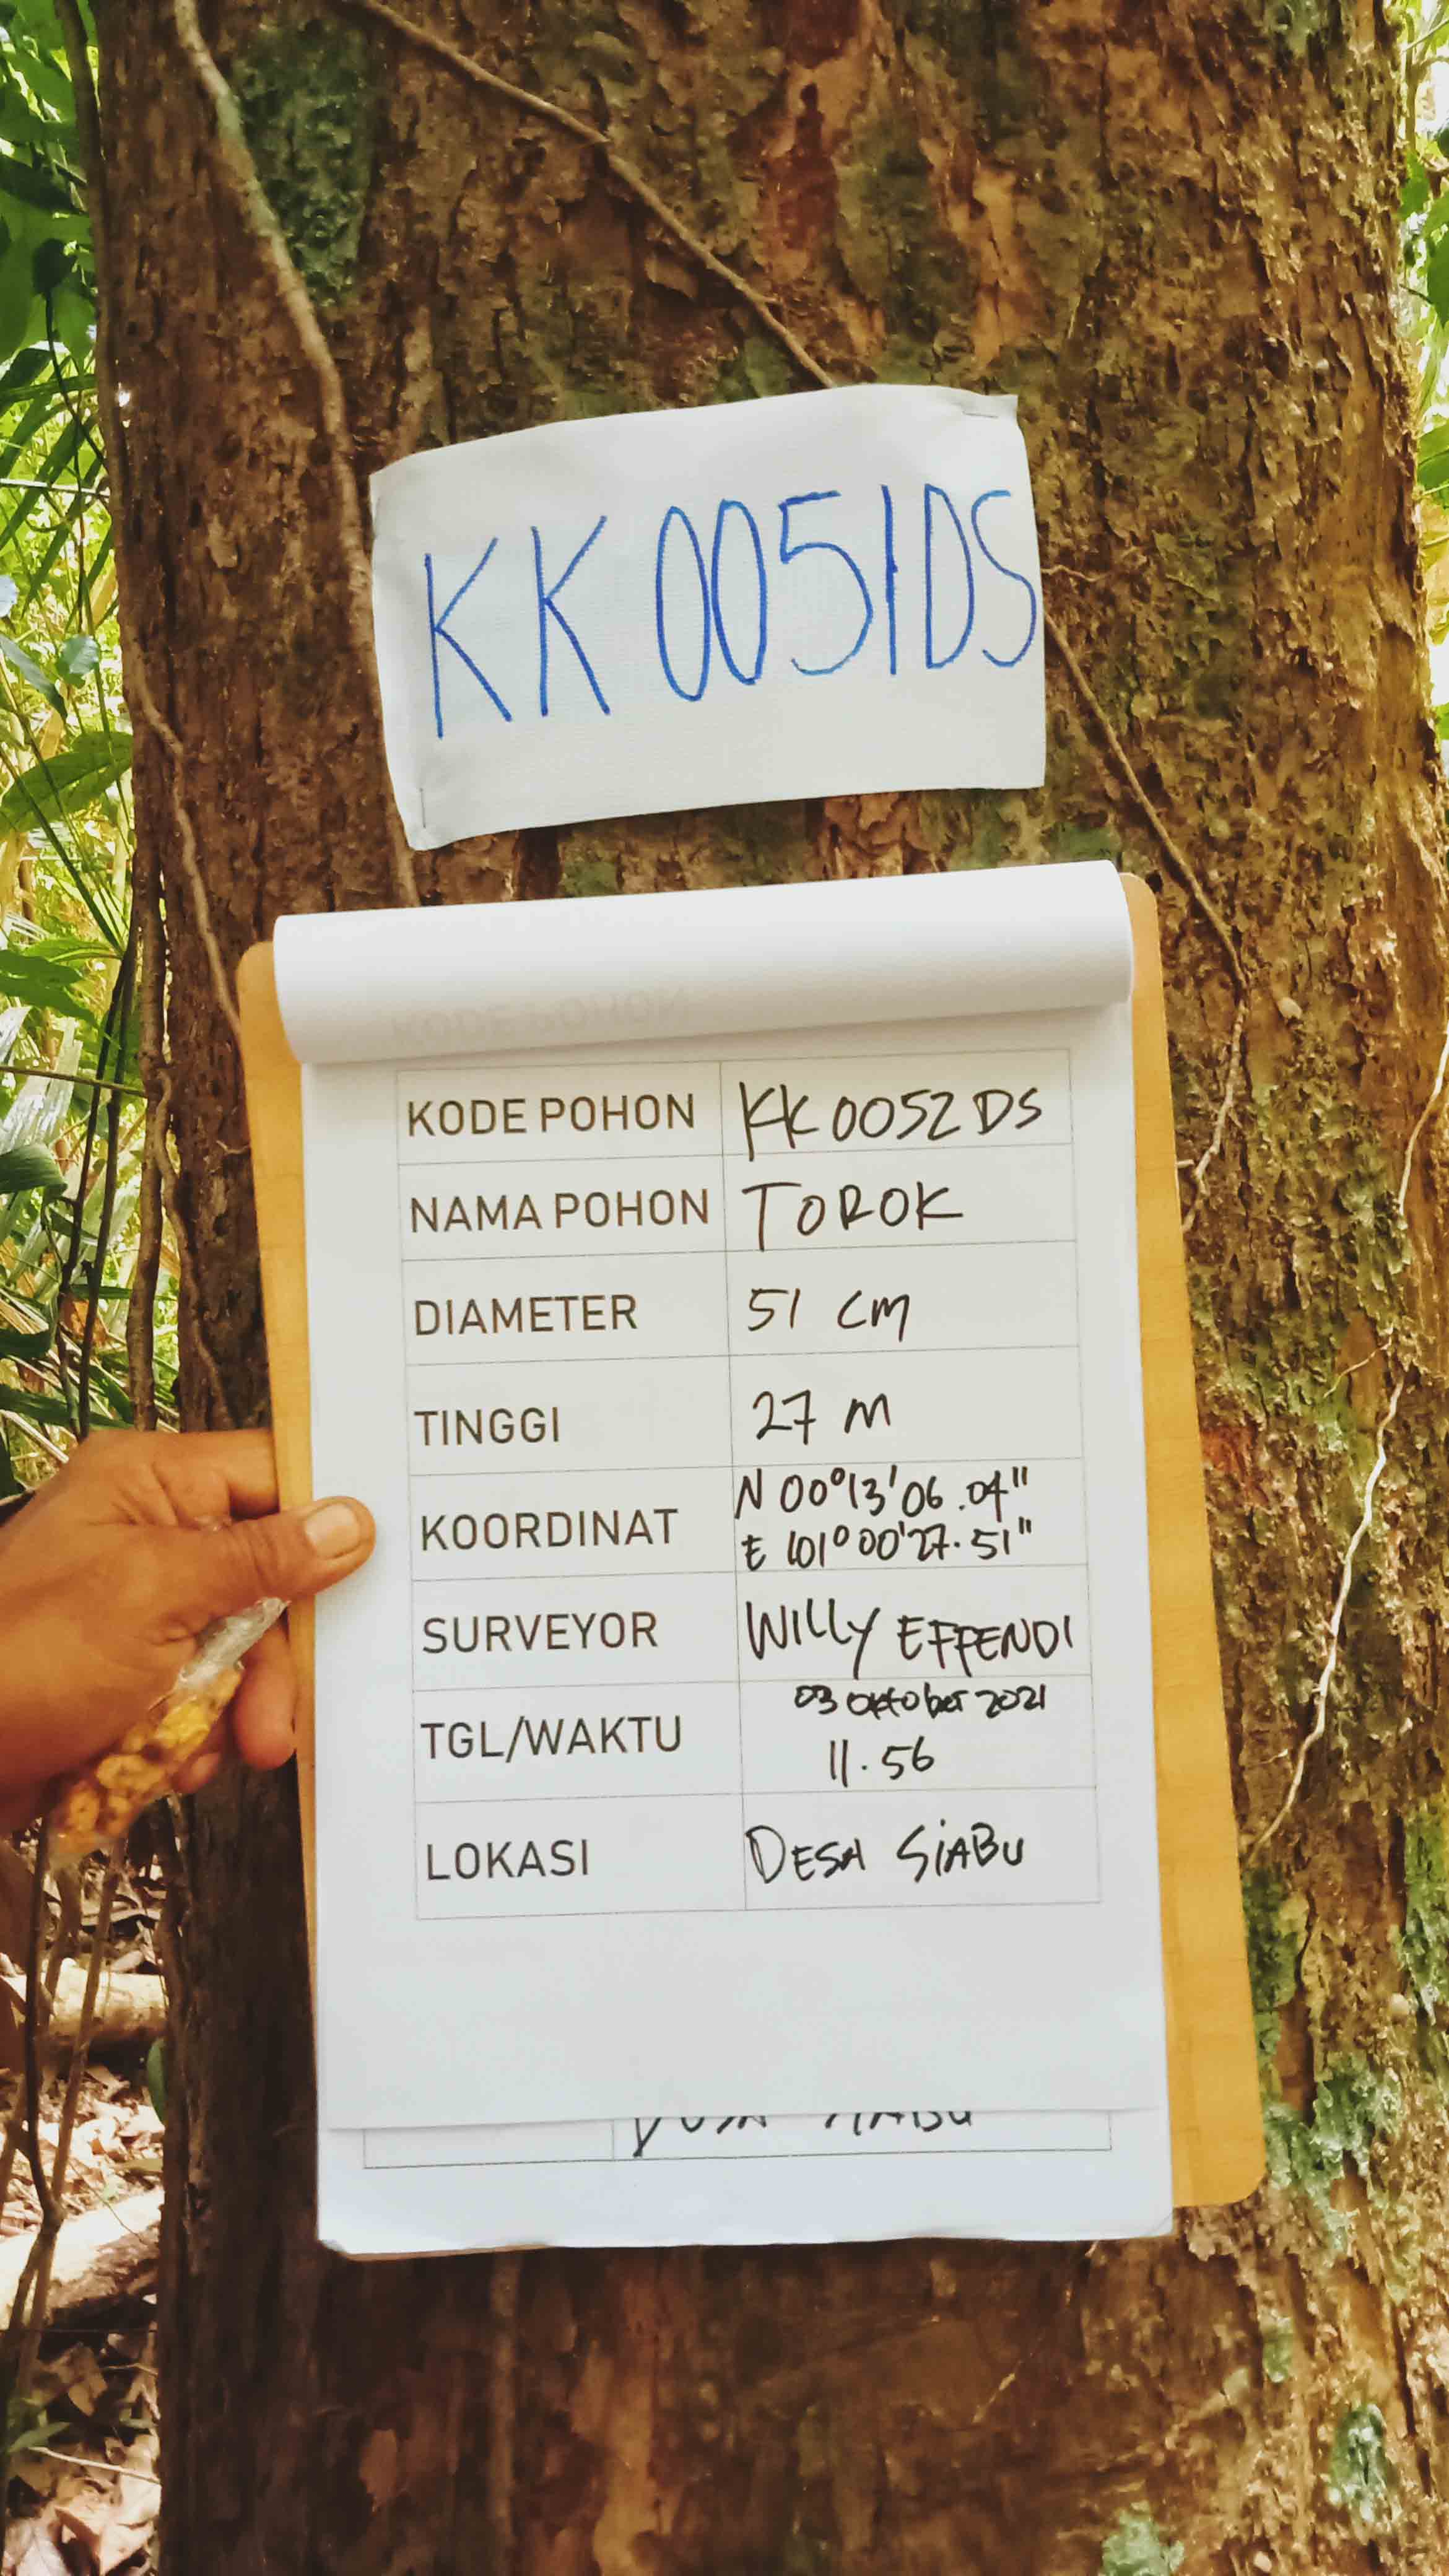 KK0051DS
KODE POHON KK0052DS
NAMA POHON TOROK
DIAMETER 51 cm
TINGGI 27 m
KOORDINAT N 00°13'06.04"
E 101°00'27.51"
SURVEYOR WILLY EFFENDI
TGL/WAKTU 03 Oktober 2021
11.56
LOKASI DESA SIABU